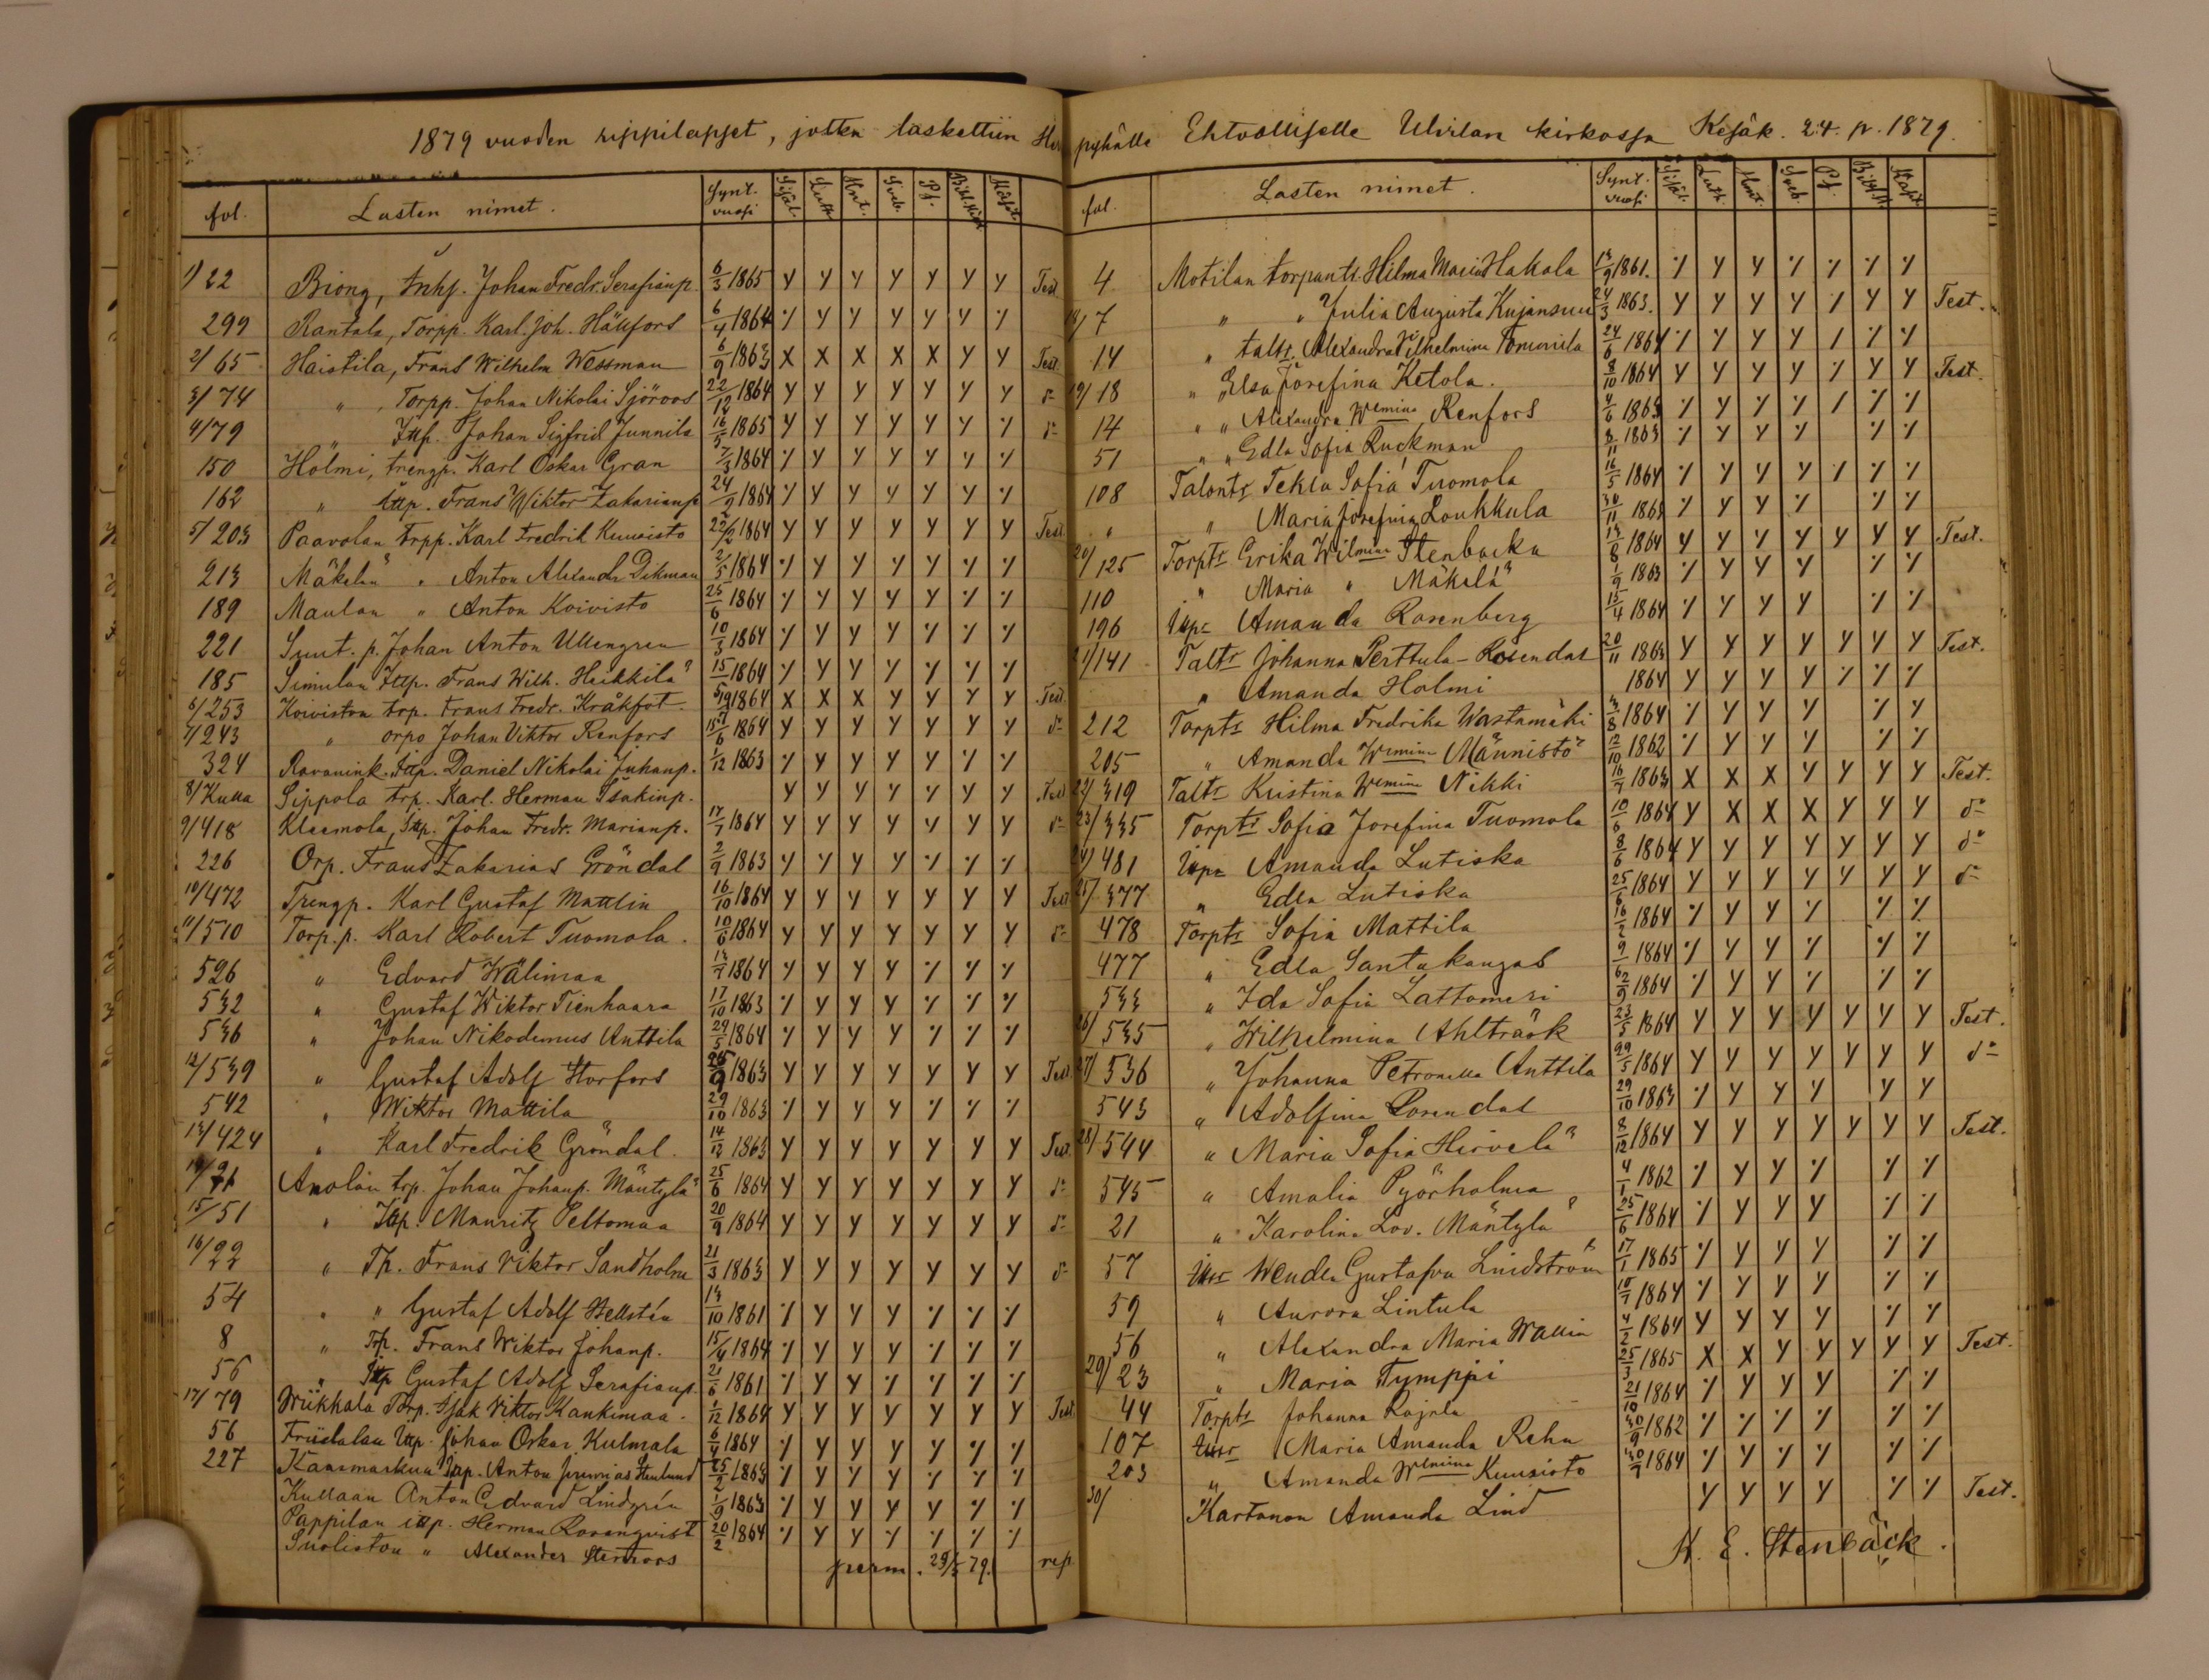 1879 vuoden rippilapset, jotka laskettiin
fol. Lasten nimet. Synt. vuosi Sisäl. Luth. Hnt. Sveb. P.f. Bibl. Hist. Käsit.
1/22 Biong, Johan Fredr. Serafianp. 6/3 1865 y y y y y y y Test.
299 Rantala, Torpp. Karl. Joh. Hällfors 6/4 1864 ٪ y y y y y ٪
2/65 Haistila, Frans Wilhelm Wessman 6/9 1863 x x x x x y y Test.
3/74 " , Torpp. Johan Nikolai Sjöroos 22/12 1864 y y y y y y y d:o
4/79 " Itp. Johan Sigfrid Junnila 16/5 1865 y y y y y y ٪ d:o
150 Holmi, trengp. Karl Oskar Gran 7/3 1864 ٪ y y y y ٪ ٪
162 " Itp. Frans Wiktor Zakarianp 24/9 1864 ٪ y y y y ٪ ٪
5/203 Paavolan trpp. Karl Fredrik Kuusisto 22/2 1864 y y y y y y y Test.
213 Mäkelän " Anton Alexander Dikman 2/5 1864 ٪ y y y y ٪ ٪
189 Maulan " Anton Koivisto 25/6 1864 ٪ y y y y ٪ ٪
221 Sunt. p. Johan Anton Ullengren 10/3 1864 ٪ y y y ٪ ٪ ٪
185 Simulan Itp. Frans Wilh. Heikkilä 15/ 1864 ٪ y y y ٪ ٪ ٪
6/253 Koiviston trp. Frans Fredr. Kråkfot 5/9 1864 x x x y y y y Test.
7/243 " orpo Johan Viktor Renfors 15/6 1864 y y y y y y y d:o
324 Ravanink. Itp. Daniel Nikolai Juhanp. 1/12 1863 ٪ y y y y ٪ ٪
8/Kulla Sippola trp. Karl. Herman Isakinp. y y y y y y y Test
9/418 Kleemola, Itp. Johan Fredr. Marianp. 17/7 1864 y y y y y y y d:o
226 Orp. Frans Zakarias Gröndal 2/9 1863 y y y y ٪ ٪ ٪
10/472 Trengp. Karl Gustaf Mattlin 16/10 1864 y y y y y y y Test
11/510 Torp. p. Karl Robert Tuomola. 10/6 1864 y y y y y y y d:o
526 " Edvard Wälimaa 13/7 1864 y y y y ٪ ٪ ٪
532 " Gustaf Wiktor Tienhaara 17/10 1863 ٪ y y y ٪ ٪ ٪
536 " Johan Nikodemus Anttila 29/5 1864 ٪ y y y ٪ ٪ ٪
12/539 " Gustaf Adolf Storfors 25/9 1863 y y y y y y y Test.
542 " Wiktor Mattila 29/10 1863 ٪ y y y ٪ ٪ ٪
13/424 " Karl Fredrik Gröndal. 14/12 1863 y y y y y y y Test.
14/21 Anolan trp. Johan Johanp. Mäntylä 25/6 1864 y y y y y y y d:o
15/51 " Itp. Mauritz Peltomaa 20/9 1864 y y y y y y y d:o
16/22 " Tp. Frans Viktor Sandholm 21/3 1863 y y y y y y y d:o
54 " " Gustaf Adolf Hellstén 13/10 1861 ٪ y y y ٪ ٪ ٪
8 " Trp. Frans Wiktor Johanp. 15/4 1864 ٪ y y y ٪ ٪ ٪
56 " Itp Gustaf Adolf Serafianp. 21/6 1861 ٪ y y ٪ ٪ ٪ ٪
17/79 Wiikkala Torp. Isak Viktor Kankimaa. 1/12 1864 y y y y y y y Test
56 Friidalan Itp. Johan Oskar Kulmala 6/4 1864 ٪ y y y y ٪ ٪
227 Kaasmarkun Itp. Anton Jeremias Stenlund 25/2 1863 ٪ y y y ٪ ٪ ٪
Kullaan Anton Edvard Lindgrén 1/9 1863 ٪ y y y y ٪ ٪
Pappilan itp. Herman Rovanqvist 20/2 1864 ٪ y y ٪ ٪ ٪ ٪
Suoliston " Alexander Stenroos perm. 29/5 79. rep.
pyhälle Ehtoolliselle Ulvilan kirkossa Kesäk. 24. p. 1879.
fol. Lasten nimet. Synt. vuosi Sisäl. Luth. Hnt. Sveb. P.f. Bibl. H. Käsit.
4 Motilan torpants. Hilma Maria Hakala 13/9 1861. ٪ y y ٪ ٪ ٪ ٪
18/7 " " Julia Augusta Kujansuu 24/3 1863. y y y y ٪ y y Test.
14 " talts. Alexandra Vilhelmina Tommila 24/6 1864 ٪ y y y ٪ ٪ ٪
19/18 " " Elsa Josefina Ketola. 8/10 1864 y y y y ٪ y y Test.
14 " " Alexandra Wemina Renfors 4/6 1863 ٪ y ٪ ٪ ٪ ٪ ٪
51 " " Edla Sofia Ruckman 8/11 1863 ٪ y y y ٪ ٪
108 Talonts Tekla Sofia Tuomola 16/5 1864 ٪ y y y ٪ ٪ ٪
" " Maria Josefina Loukkula 30/11 1863 ٪ y y ٪ ٪ ٪
20/125 Torpts Erika Wilmina Stenbacka 13/8 1864 y y y y y y y Test.
110 " Maria " Mäkelä 1/9 1863 ٪ y y y ٪ ٪
196 Itps Amanda Rosenberg 15/4 1864 ٪ y y y ٪ ٪
21/141 Talts Johanna Perttula-Rosendal 20/11 1863 y y y y y y y Test.
" Amanda Holmi 1864 y y y y ٪ ٪ ٪
212 Torpts Hilma Fredrika Wastamäki 3/8 1864 ٪ y y y ٪ ٪
205 " Amanda Wemina Männistö 12/10 1862 ٪ y y y ٪ ٪
22/319 Talts Kristina Wemina Nikki 16/7 1863 x x x y y y y Test.
23/335 Torpts Sofia Josefina Tuomola 10/6 1864 y x x x y y y d:o
24/481 Itps Amanda Lutiska 8/6 1864 y y y y y y y d:o
25/377 " Edla Lutiska 25/6 1864 y y y y y y y d:o
478 Torpts Sofia Mattila 16/2 1864 ٪ y y ٪ ٪ ٪
477 " Edla Santakangas 9/ 1864 ٪ y y ٪ ٪ ٪
533 " Ida Sofia Lattomeri 6/9 1864 ٪ y y ٪ ٪ ٪
26/535 " Wilhelmina Ahlträsk 23/5 1864 y y y y y y y Test.
27/536 " Johanna Petronella Anttila 29/5 1864 y y y y y y y d:o
543 " Adolfina Rosendal 29/10 1863 ٪ y y y y y
28/544 " Maria Sofia Hirvelä 8/12 1864 y y y y y y y Test.
545 " Amalia Pyörholma 4/1 1862 ٪ y y ٪ ٪ ٪
21 " Karolina Lov. Mäntylä 25/6 1864 ٪ y y y ٪ ٪
57 Itsr Wendla Gustafva Lindström 17/1 1865 ٪ y y y ٪ ٪
59 " Aurora Lintula 18/7 1864 ٪ y y y ٪ ٪
56 " Alexandra Maria Wallin 4/2 1864 y y y y ٪ ٪
29/23 " Maria Tymppi 25/3 1865 x x y y y y y Test.
44 Torpts Johanna Rajala 21/10 1864 ٪ y y y ٪ ٪
107 Itsr Maria Amanda Rehn 30/9 1862 ٪ ٪ ٪ ٪ ٪ ٪
203 " Amanda Wlmina Kuusisto 30/7 1864 ٪ y y y ٪ ٪
30/ Kartanon Amanda Lind y y y y ٪ ٪ Test.
K. E. Stenbäck.